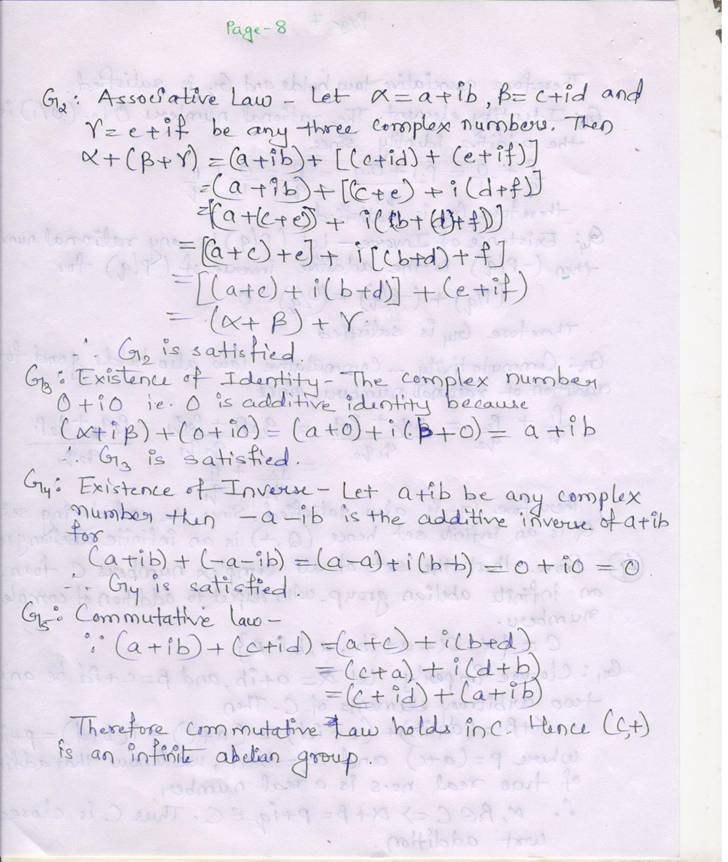 Page-8
G2: Associative Law - Let α = a+ib, β = c+id and
γ = e+if be any three complex numbers. Then
α+(β+γ) = (a+ib) + [(c+id) + (e+if)]
= (a+ib) + [(c+e) + i(d+f)]
= [a+(c+e)] + i(b+(d+f))]
= [(a+c)+e] + i[(b+d)+f]
= [(a+c) + i(b+d)] + (e+if)
= (α+β) + γ
∴ G2 is satisfied.
G3: Existence of Identity - The complex number
0+i0 ie. 0 is additive identity because
(α+iβ)+(0+i0) = (a+0)+i(b+0) = a+ib
∴ G3 is satisfied.
G4: Existence of Inverse - Let a+ib be any complex
number then -a-ib is the additive inverse of a+ib
for
(a+ib) + (-a-ib) = (a-a)+i(b-b) = 0+i0 = 0
∴ G4 is satisfied.
G5: Commutative law -
∵ (a+ib) + (c+id) = (a+c) + i(b+d)
= (c+a) + i(d+b)
= (c+id) + (a+ib)
Therefore commutative Law holds in C. Hence (C,+)
is an infinite abelian group.